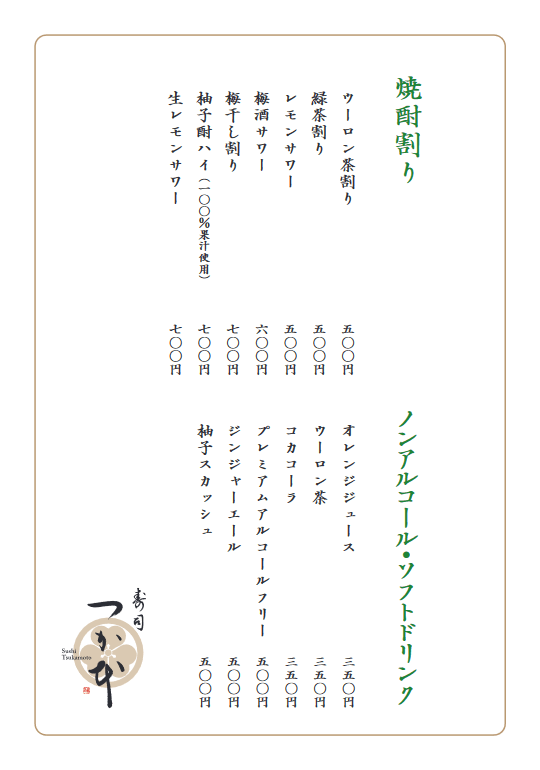 焼酎割り
ウーロン茶割り
五〇〇円
緑茶割り
五〇〇円
レモンサワー
五〇〇円
梅酒サワー
六〇〇円
梅干し割り
七〇〇円
柚子酎ハイ（一〇〇％果汁使用）
七〇〇円
生レモンサワー
七〇〇円
ノンアルコール・ソフトドリンク
オレンジジュース
三五〇円
ウーロン茶
三五〇円
コカコーラ
三五〇円
プレミアムアルコールフリー
五〇〇円
ジンジャーエール
五〇〇円
柚子スカッシュ
五〇〇円
寿司
つか本
Sushi
Tsukamoto